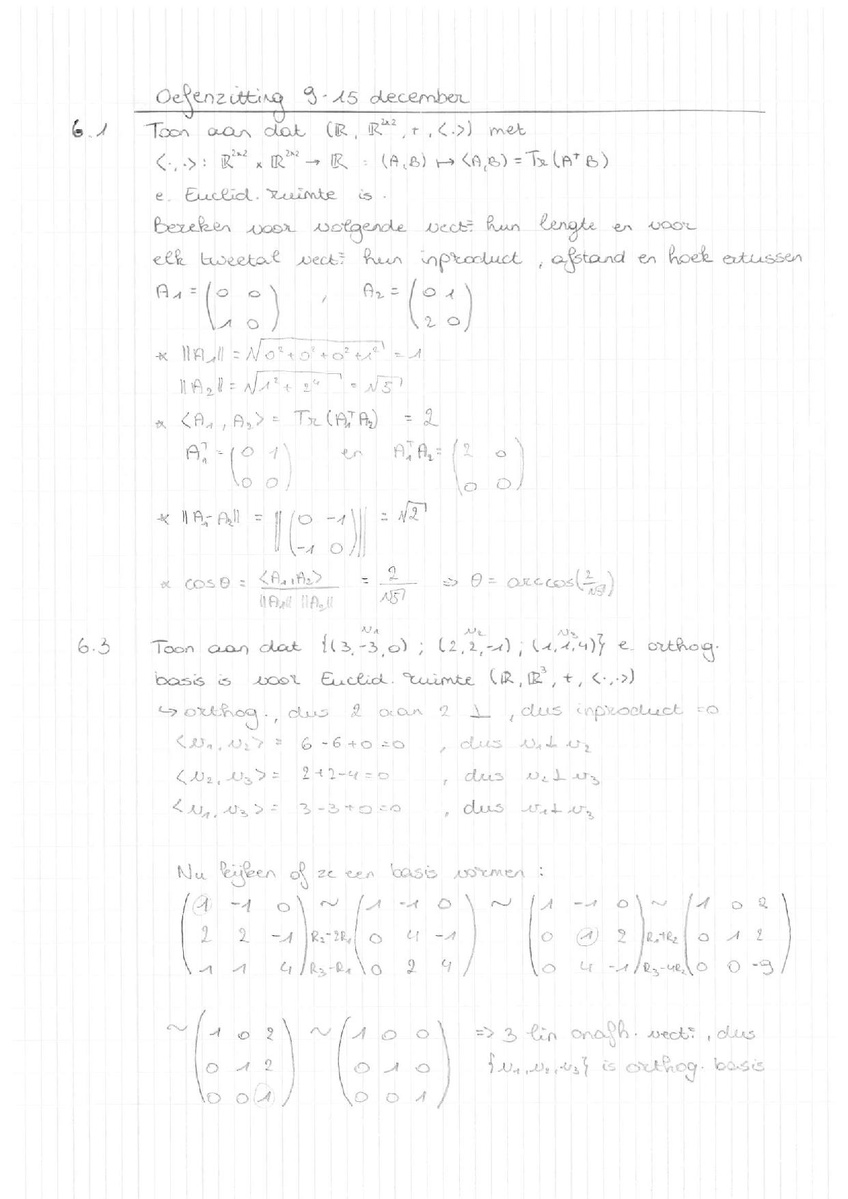 Oefenzitting 9-15 december
6.1 Toon aan dat (ℝ, ℝ²ˣ², +, <.>) met
<·,·>: ℝ²ˣ² × ℝ²ˣ² → ℝ : (A,B) ↦ <A,B> = Tr(AᵀB)
e. Euclid. ruimte is.
Bereken voor volgende vect= hun lengte en voor
elk tweetal vect= hun inproduct, afstand en hoek ertussen
A₁ = (0 0 , A₂ = (0 1
1 0) 2 0)
* ||A₁|| = √(0²+0²+0²+1²) = 1
||A₂|| = √(1²+2⁴) = √5
* <A₁, A₂> = Tr(A₁ᵀA₂) = 2
A₁ᵀ = (0 1 en A₁ᵀA₂ = (2 0
0 0) 0 0)
* ||A₁-A₂|| = ||(0 -1 = √2
-1 0)||
* cosθ = <A₁,A₂> / ||A₁|| ||A₂|| = 2/√5 => θ = arccos(2/√5)
6.3 Toon aan dat {(3,-3,0) ; (2,2,-1) ; (1,1,4)} e. orthog.
v₁ v₂ v₃
basis is voor Euclid. ruimte (ℝ, ℝ³, +, <·,·>)
↳ orthog., dus 2 aan 2 ⊥, dus inproduct = 0
<v₁, v₂> = 6-6+0=0 , dus v₁⊥v₂
<v₂, v₃> = 2+2-4=0 , dus v₂⊥v₃
<v₁, v₃> = 3-3+0=0 , dus v₁⊥v₃
Nu kijken of ze een basis vormen :
(1 -1 0) ~ (1 -1 0) ~ (1 -1 0) ~ (1 0 2)
2 2 -1 R₂-2R₁ 0 4 -1 0 1 2 R₁+R₂ 0 1 2
1 1 4 R₃-R₁ 0 2 4 0 4 -1 R₃-4R₂ 0 0 -9
~ (1 0 2) ~ (1 0 0) => 3 lin onafh. vect=, dus
0 1 2 0 1 0 {v₁,v₂,v₃} is orthog. basis
0 0 1 0 0 1